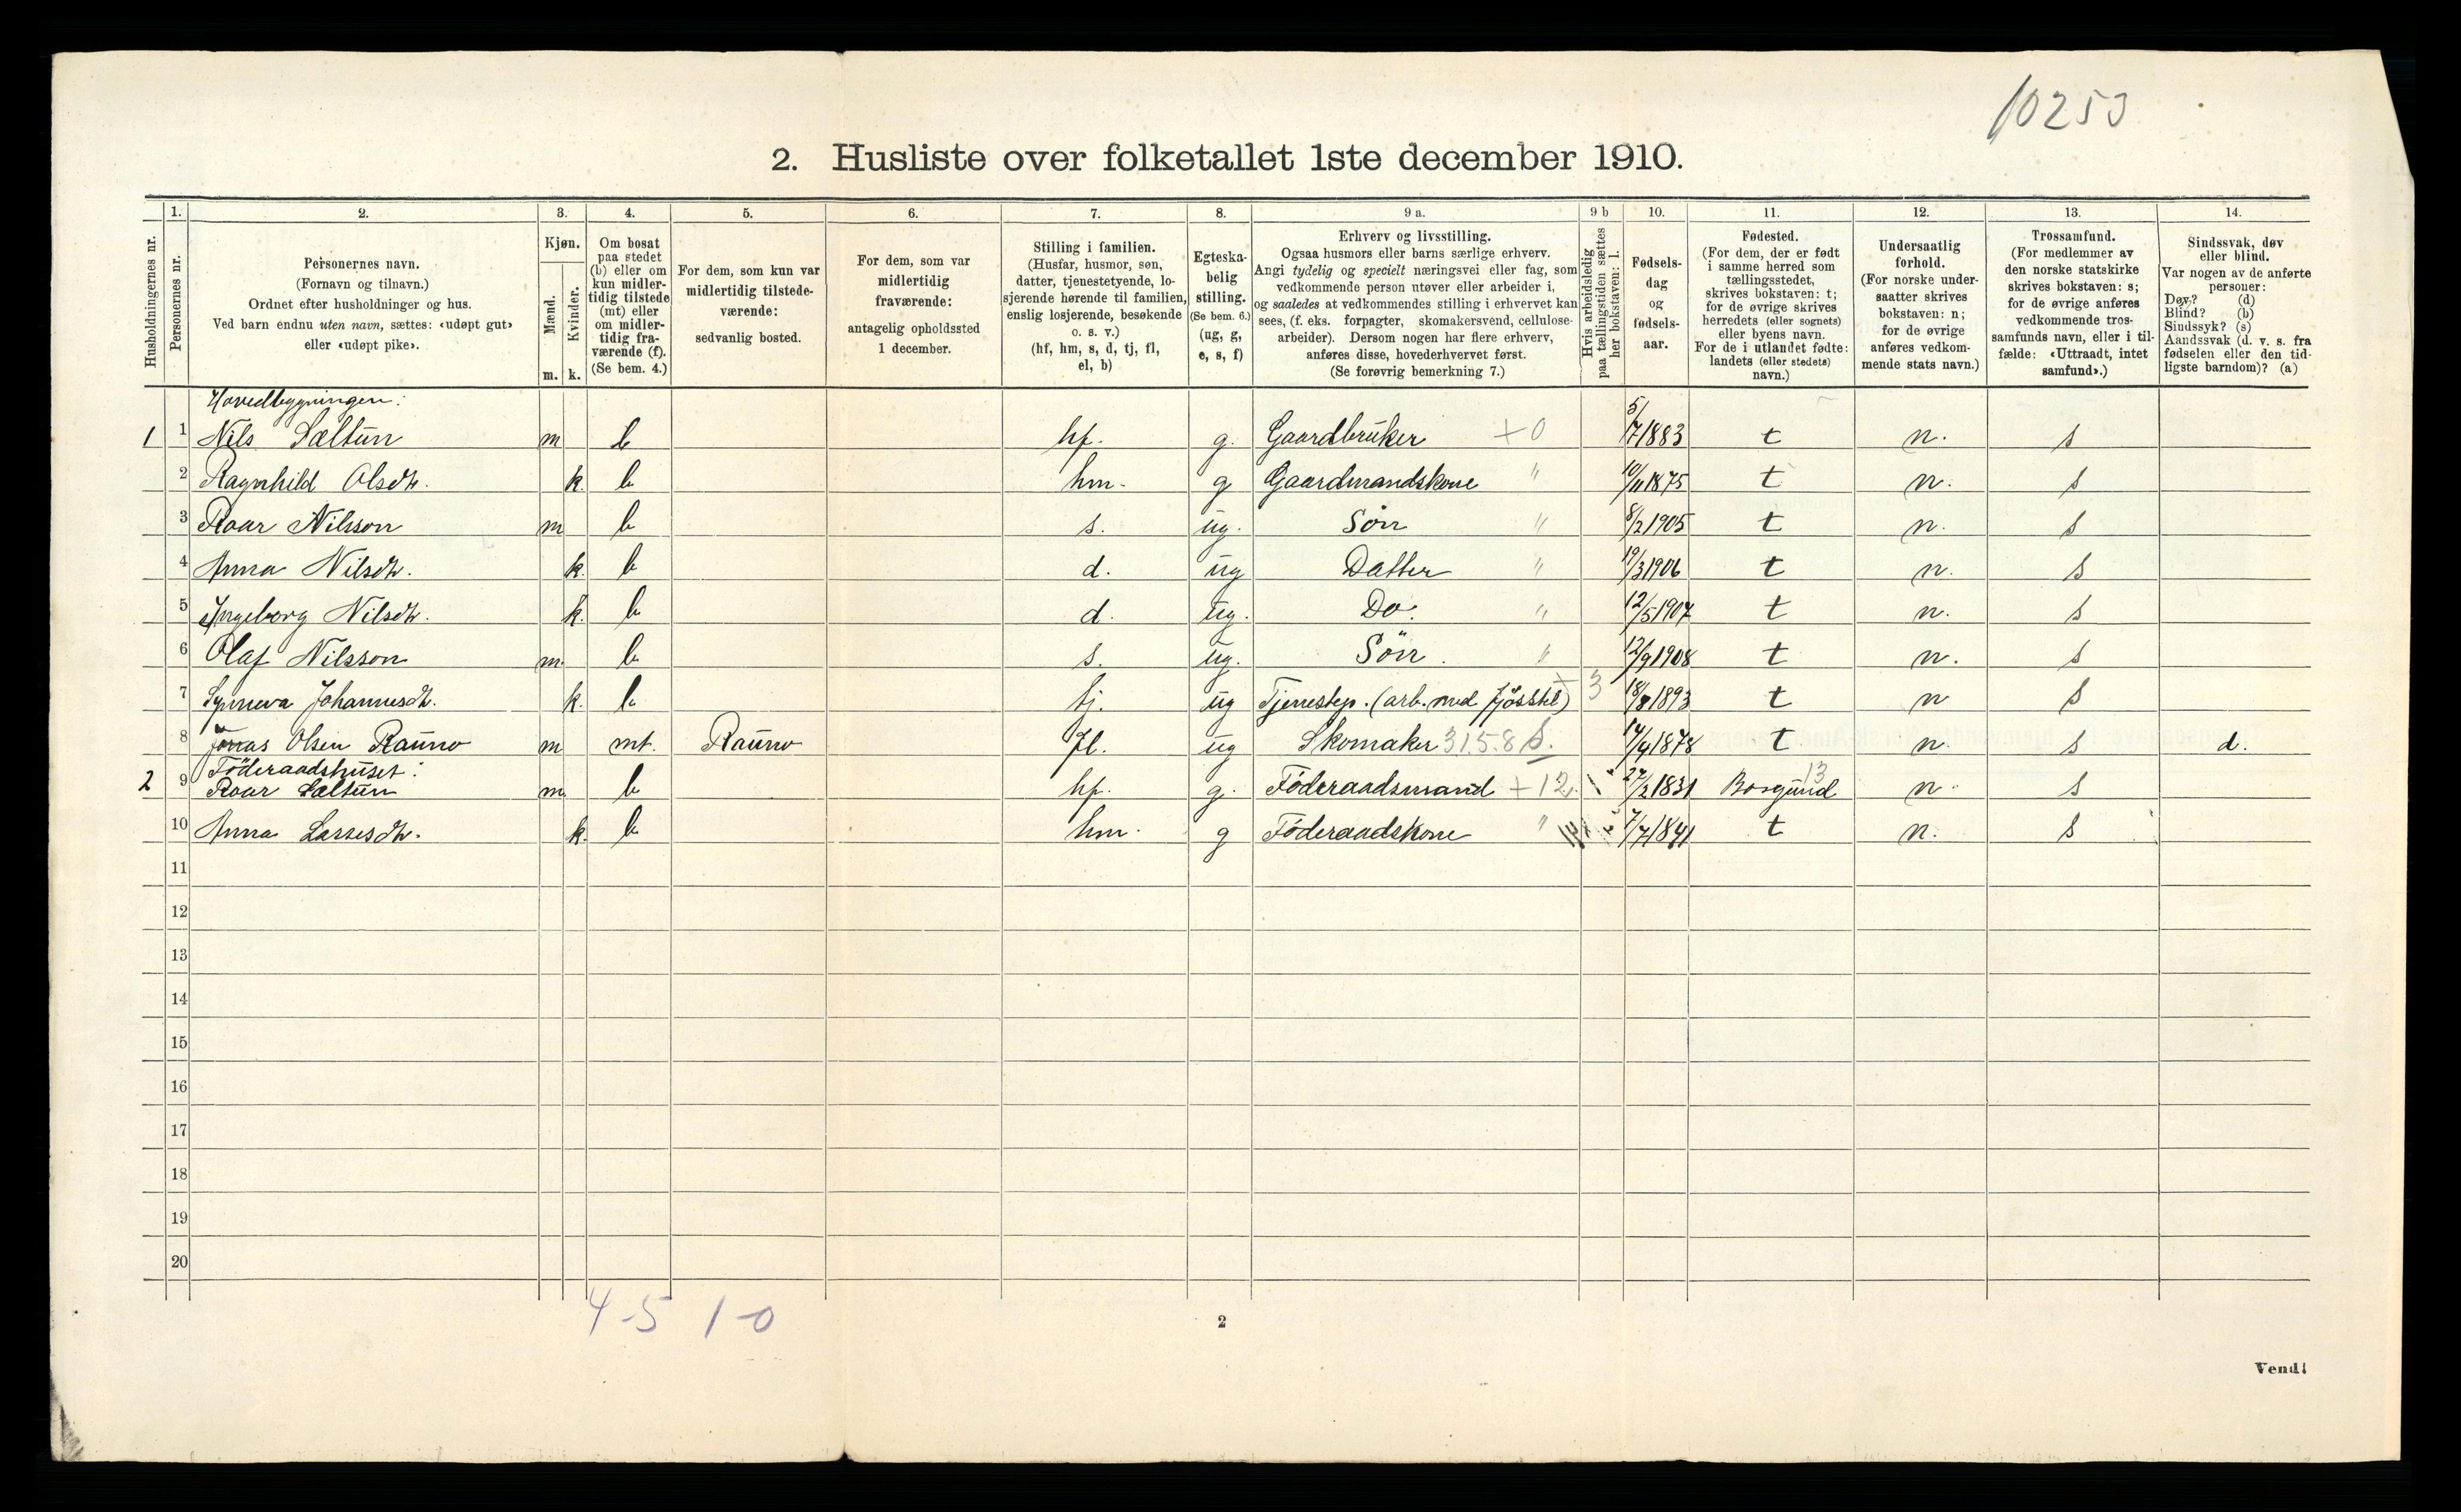 10253
2. Husliste over folketallet 1ste december 1910.
Husholdningernes nr.
1.
Personernes nr.
2.
Personernes navn.
(Fornavn og tilnavn.)
Ordnet efter husholdninger og hus.
Ved barn endnu uten navn, sættes: «udøpt gut»
eller «udøpt pike».
3.
Kjøn.
Mænd.
m.
Kvinder.
k.
4.
Om bosat
paa stedet
(b) eller om
kun midler-
tidig tilstede
(mt) eller
om midler-
tidig fra-
værende (f).
(Se bem. 4.)
5.
For dem, som kun var
midlertidig tilstede-
værende:
sedvanlig bosted.
6.
For dem, som var
midlertidig
fraværende:
antagelig opholdssted
1 december.
7.
Stilling i familien.
(Husfar, husmor, søn,
datter, tjenestetyende, lo-
sjerende hørende til familien,
enslig losjerende, besøkende
o. s. v.)
(hf, hm, s, d, tj, fl,
el, b)
8.
Egteska-
belig
stilling.
(Se bem. 6.)
(ug, g,
e, s, f)
9 a.
Erhverv og livsstilling.
Ogsaa husmors eller barns særlige erhverv.
Angi tydelig og specielt næringsvei eller fag, som
vedkommende person utøver eller arbeider i,
og saaledes at vedkommendes stilling i erhvervet kan
sees, (f. eks. forpagter, skomakersvend, cellulose-
arbeider). Dersom nogen har flere erhverv,
anføres disse, hovederhvervet først.
(Se forøvrig bemerkning 7.)
9 b
Hvis arbeidsledig
paa tællingstiden sættes
her bokstaven: l.
10.
Fødsels-
dag
og
fødsels-
aar.
11.
Fødested.
(For dem, der er født
i samme herred som
tællingsstedet,
skrives bokstaven: t;
for de øvrige skrives
herredets (eller sognets)
eller byens navn.
For de i utlandet fødte:
landets (eller stedets)
navn.)
12.
Undersaatlig
forhold.
(For norske under-
saatter skrives
bokstaven: n;
for de øvrige
anføres vedkom-
mende stats navn.)
13.
Trossamfund.
(For medlemmer av
den norske statskirke
skrives bokstaven: s;
for de øvrige anføres
vedkommende tros-
samfunds navn, eller i til-
fælde: «Uttraadt, intet
samfund».)
14.
Sindssvak, døv
eller blind.
Var nogen av de anførte
personer:
Døv? (d)
Blind? (b)
Sindssyk? (s)
Aandssvak (d. v. s. fra
fødselen eller den tid-
ligste barndom)? (a)
Hovedbygningen:
1 1 Nils Sæltun m b hf. g. Gaardbruker +0 5/7 1883 t n. s
2 Ragnhild Olsdtr. k. b hm. g Gaardmandskone " 10/11 1875 t n. s
3 Roar Nilsson m b s. ug. Sön " 8/2 1905 t n. s
4 Anna Nilsdtr. k. b d. ug Datter " 19/3 1906 t n. s
5 Ingeborg Nilsdtr. k. b d. ug. Do. " 12/5 1907 t n. s
6 Olaf Nilsson m. b s. ug. Sön. " 12/9 1908 t n. s
7 Synneva Johannesdtr. k. b tj. ug Tjenestep. (arb. med fjösstel) 3 18/8 1893 t n s
8 Jonas Olsen Rauno m mt. Rauno fl. ug Skomaker 31.5.8 S. 17/4 1878 t n. s d.
Föderaadshuset:
2 9 Roar Sæltun m b hf. g. Föderaadsmand +12. 27/2 1831 Borgund 13 n. s
10 Anna Lassesdtr. k. b hm. g Föderaadskone " 7/7 1841 t n. s
11
12
13
14
15
16
17
18
19
20
4-5 1-0
2
Vend!